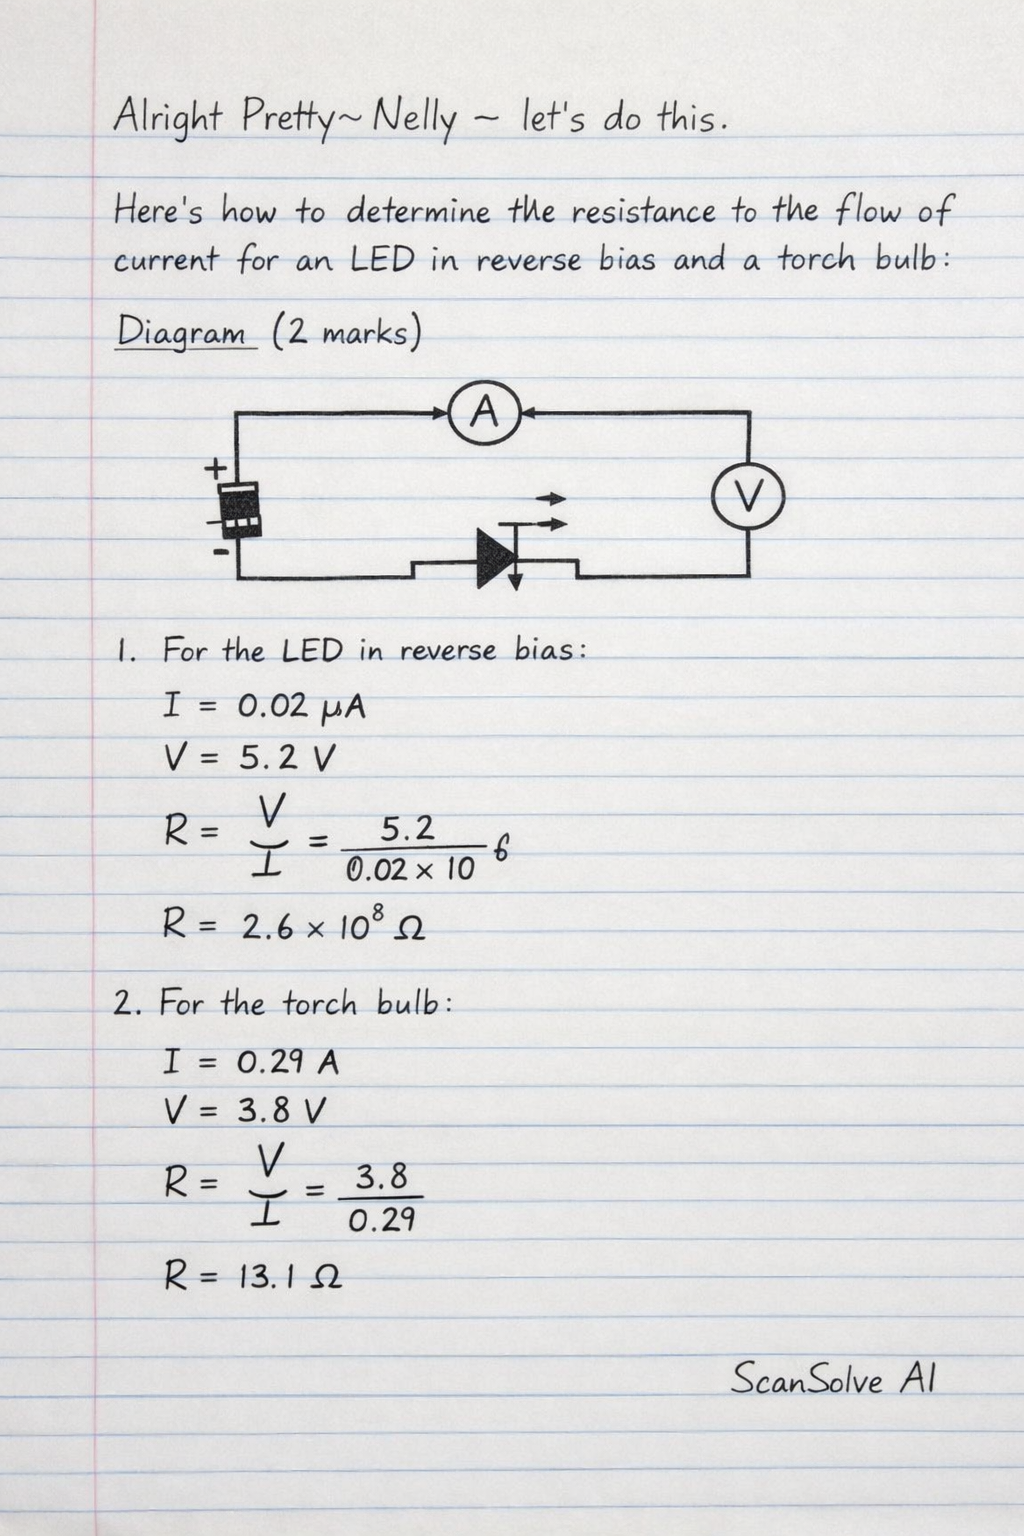 Alright Pretty~ Nelly ~ let's do this.
Here's how to determine the resistance to the flow of
current for an LED in reverse bias and a torch bulb:
Diagram (2 marks)
A
+
V
-
1. For the LED in reverse bias:
I = 0.02 μA
V = 5.2 V
R = V/I = 5.2/0.02 × 10 6
R = 2.6 × 10⁸ Ω
2. For the torch bulb:
I = 0.29 A
V = 3.8 V
R = V/I = 3.8/0.29
R = 13.1 Ω
ScanSolve AI